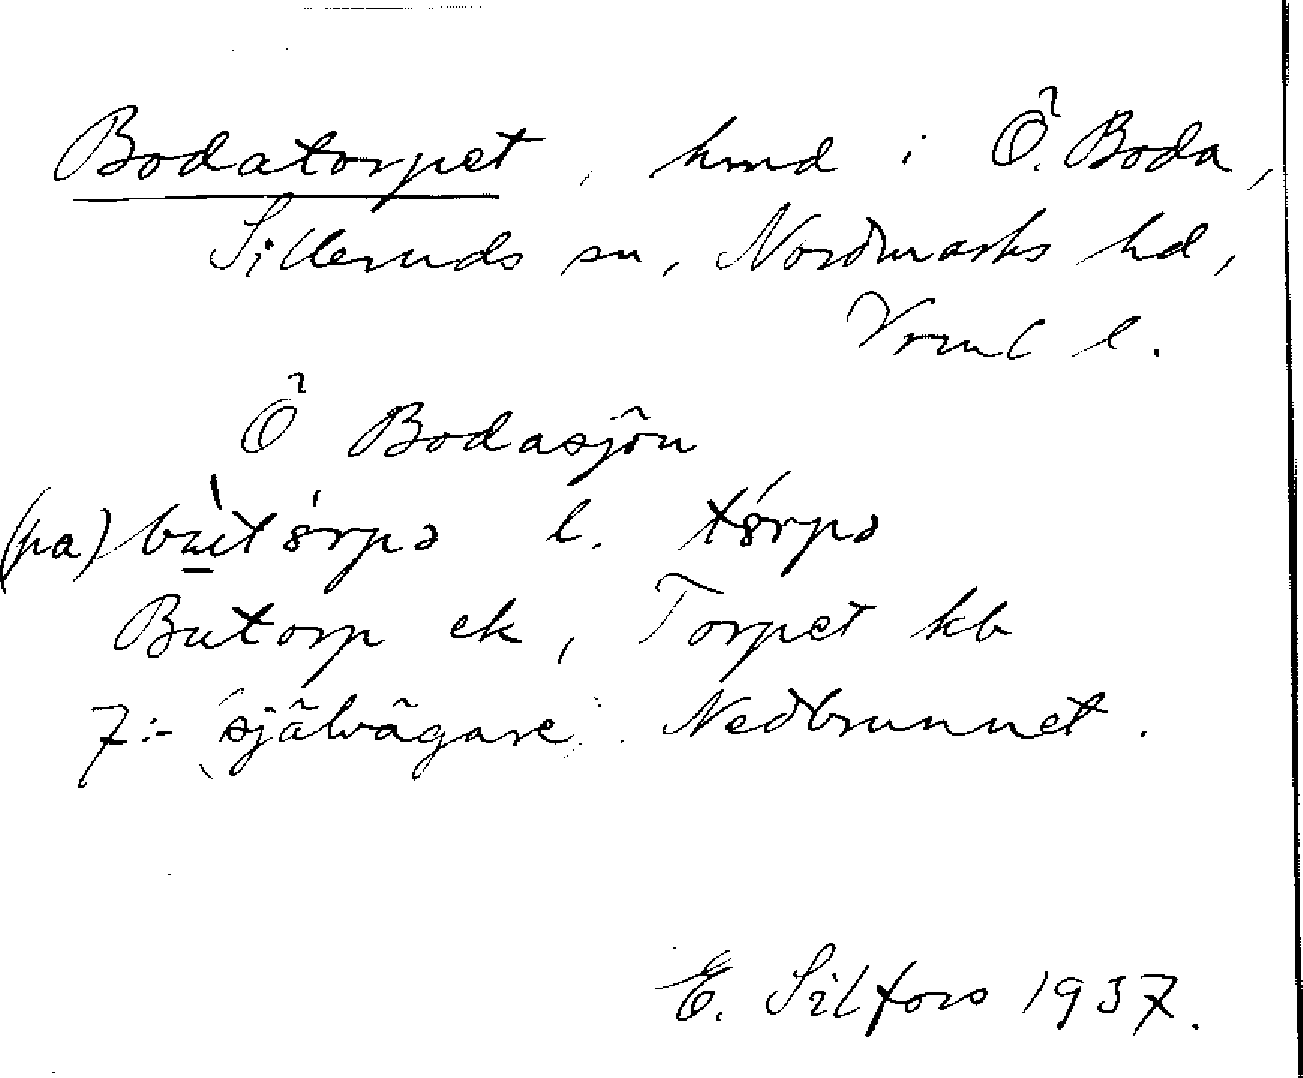 Bodatorpet, hmd i Ö. Boda,
Silleruds sn, Nordmarks hd,
Vrml l.
Ö Bodasjön
(pa) bù̲tórpə l. tórpə
Butorp ek, Torpet kb
7:- självägare. Nedbrunnet.
E. Silfors 1937.